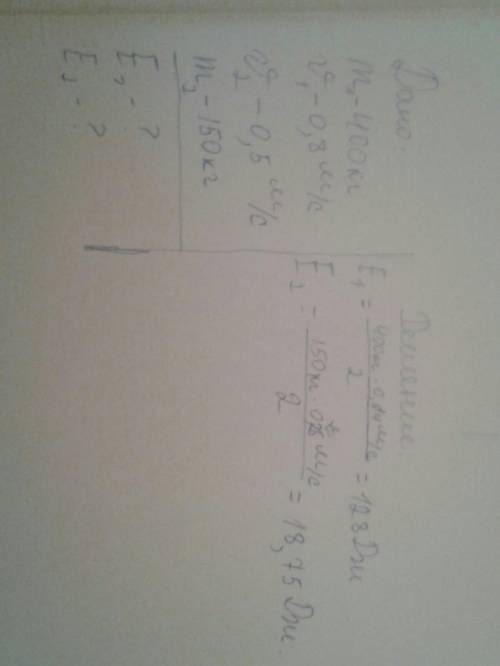 Дано:
m₁-400кг
v₁-0,8м/с
v₂-0,5 м/с
m₂-150кг
E₁-?
E₂-?
Решение.
E₁ = 400кг · 0,64м/с / 2 = 128Дж
E₂ - 150кг · 0,25м/с / 2 = 18,75 Дж.